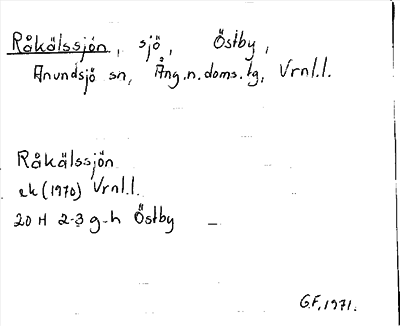 Råkälssjön, sjö, Östby,
Anundsjö sn, Ång.n.doms.tg, Vrnl.l.
Råkälssjön
ek (1970) Vrnl.l.
20 H 2-3 g-h Östby –
G.F. 1971.